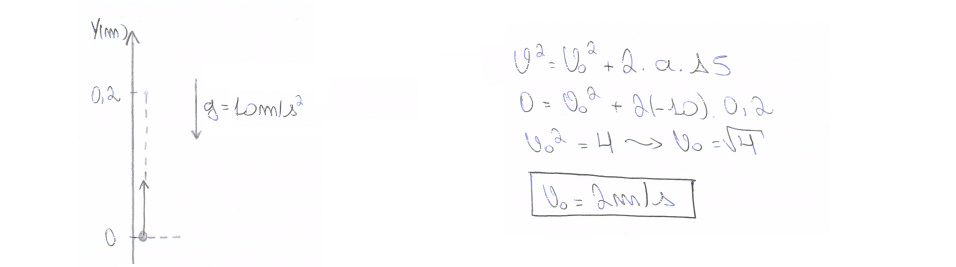 Y(m)
0,2
g=10m/s²
0
V²=V₀²+2.a.ΔS
0=V₀²+2(-10).0,2
V₀²=4⇝V₀=√4
V₀=2m/s